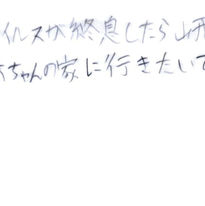 イルスが終息したら山形
ちゃんの家に行きたいで